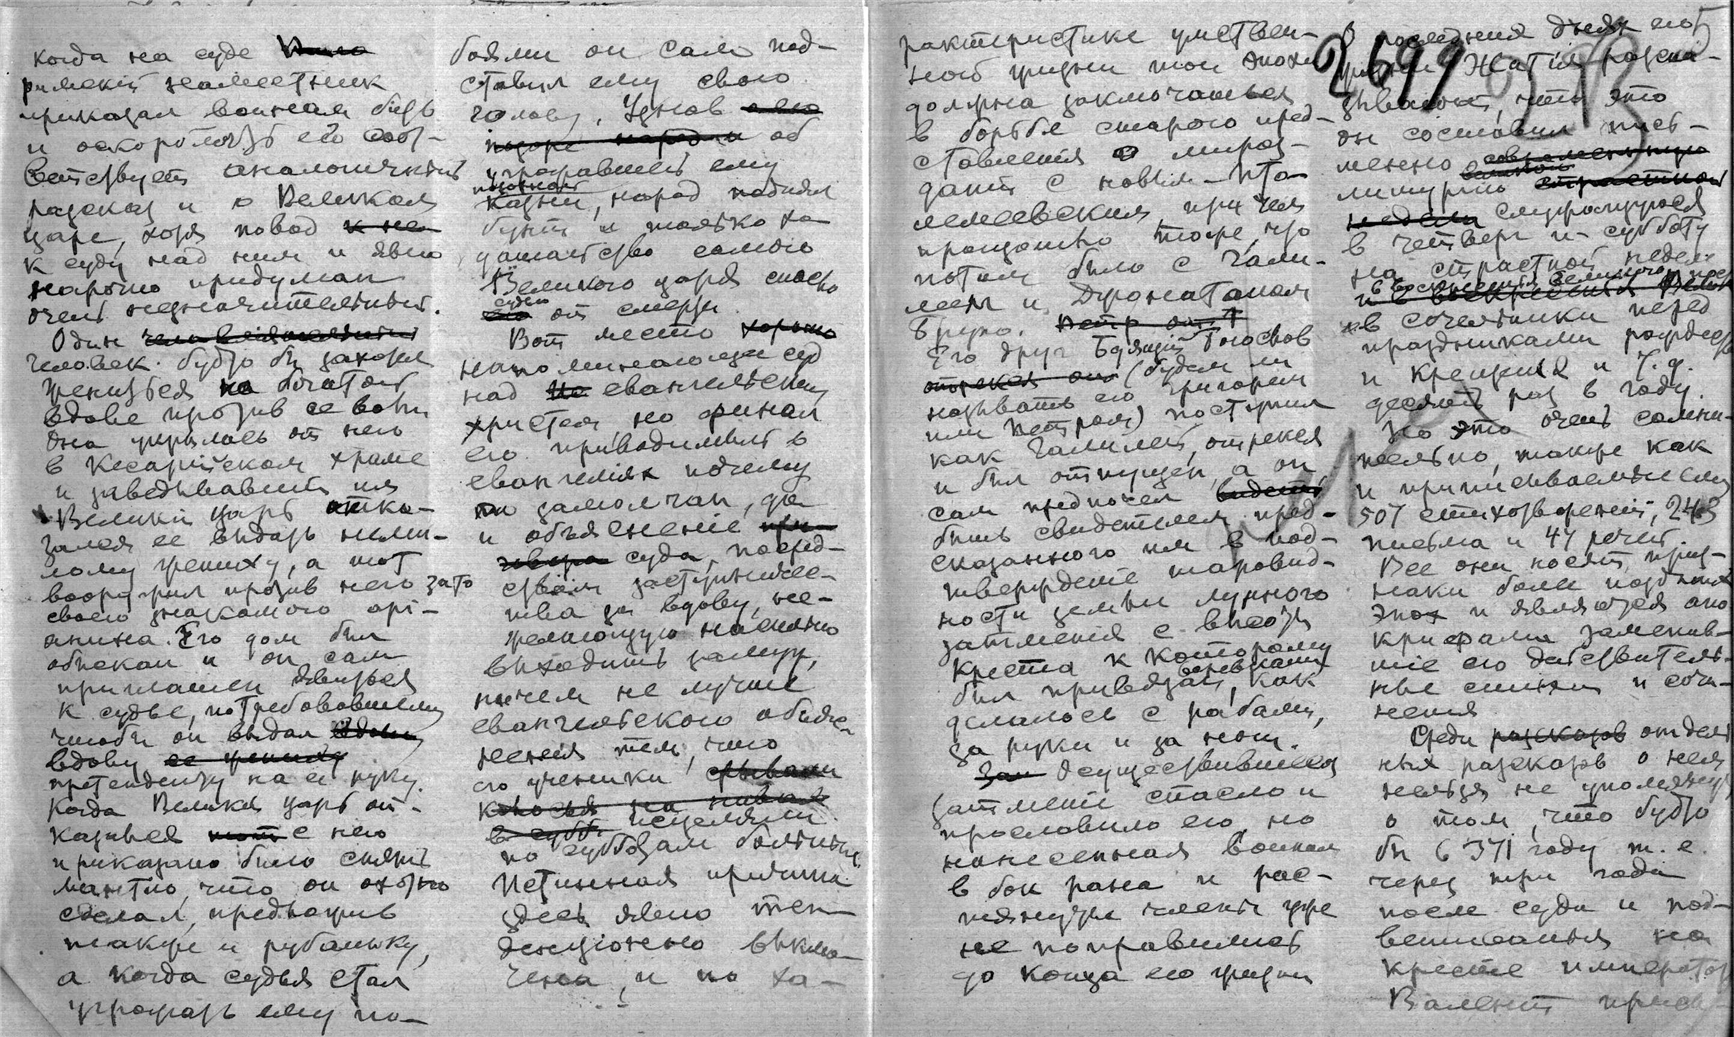 когда на суде
римскій наместник
приказал воинам бить
и оскорблять его соот-
ветствует аналогичный
разсказ и о Великом
царе, хотя повод к не
к суду над ним и явно
нарочно придуман
очень незначительный.
Один
человек будто бы захотел
жениться на богатой
вдове против ее воли
Она укрылась от него
в Кесарійском храме
и заведывавшій им
Великій царь отка-
зался ее выдать неми-
лому жениху, а тот
вооружил против него
своего знакомого арі-
анина. Его дом был
обыскан и он сам
приглашен явиться
к судье, потребовавшему
чтобы он выдал вдову
вдову ее жениху
претенденту на ее руку.
Когда Великій царь от-
казался тот с него
приказано было снять
мантію, что он охотно
сделал, предложив
также и рубашку,
а когда судья стал
угрожать ему по-
боями он сам под-
ставил ему свою
голову. Узнав о его
позоре народ и об
угрожавшей ему
казни, народ поднял
бунт и только хо-
датайство самого
Великого царя спасло
судью
его от смерти.
Вот место хорошо
напоминающее суд
над Ие евангельским
христом, но финал
его приводимый в
евангеліях почему
то замолчан, да
и объясненіе при-
говора суда, посред-
зато
ством заступниче-
ства за вдову, не-
желающую насильно
выходить замуж,
ничем не лучше
евангельского объяс-
ненія тем, что
его ученики срывали
колосья на нивах
в субб. исцеляли
по субботам больных
Истинная причина
здесь явно тен-
денціозно выклю-
чена, и по ха-
рактеристике умствен-
ной жизни той эпохи
должна заключаться
в борьбе старого пред-
ставленія о мироз-
даніи с новым — пто-
лемеевским, при чем
произошло тоже, что
потом было с Гали-
леем и Джонатаном
Бруно. Петр от
Его друг Бдящій Богослов
отрекся он (будем ли
называть его Григорием
или Петром) поступил
как Галилей, отрекся
и был отпущен, а он
сам предпочел видеть
быть свидетелем пред-
сказанного им в под-
твержденіе шаровид-
ности земли лунного
затменія с высоты
креста к которому
веревками
был привязан, как
делалось с рабами,
за руки и за ноги.
Зат Осуществившееся
затменіе спасло и
прославило его, но
нанесенная воином
в бок рана и рас-
тянутые члены уже
не поправились
до конца его жизни
2699
5
В последніе дни его
жизни Житія разска-
зывают, что это
он составил пись-
менно современную
литургію страстной
недели служащуюся
в четверг и субботу
на страстной недел.
в сочельники перед
праздниками рождества
и крещенія и т. д.
десять раз в году.
Но это очень сомни-
тельно, также как
и приписываемые ему
507 стихотвореній, 243
письма и 44 речей.
Все они носят приз-
наки более поздних
эпох и являются апо
крифами заменив-
шіе его действитель-
ные книги и сочи-
ненія.
Среди разсказов отдель
ных разсказов о нем
нельзя не упомянуть
о том, что будто
бы в 371 году т. е.
через три года
после суда и под-
вешиванья на
кресте император
Валент